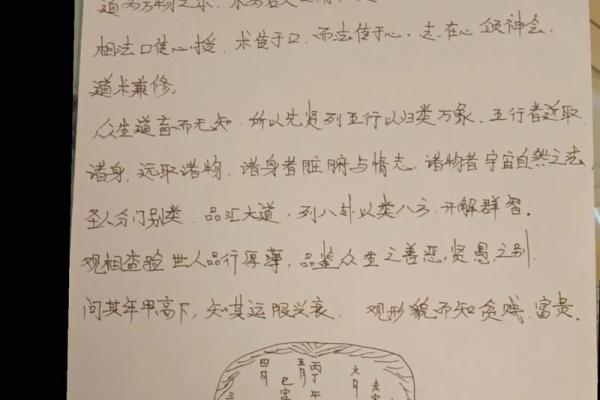 道为万物之本
相法口传心授，术传于口，而法传于心，志在心领神会，
道术兼修。
众生道育而无知，所以先贤列五行以归类万象，五行者近取
诸身，远取诸物，诸身者脏腑与情志，诸物者宇宙自然之志，
圣人分门别类，品汇大道，列八卦以类八方，开解群智。
观相查验世人品行厚薄，品鉴众生之善恶，贤愚之别，
问其年甲高下，知其运限兴衰，观形貌而知贫贱，富贵。
四月 五月 丙丁 午 六月 未宫
巳宫